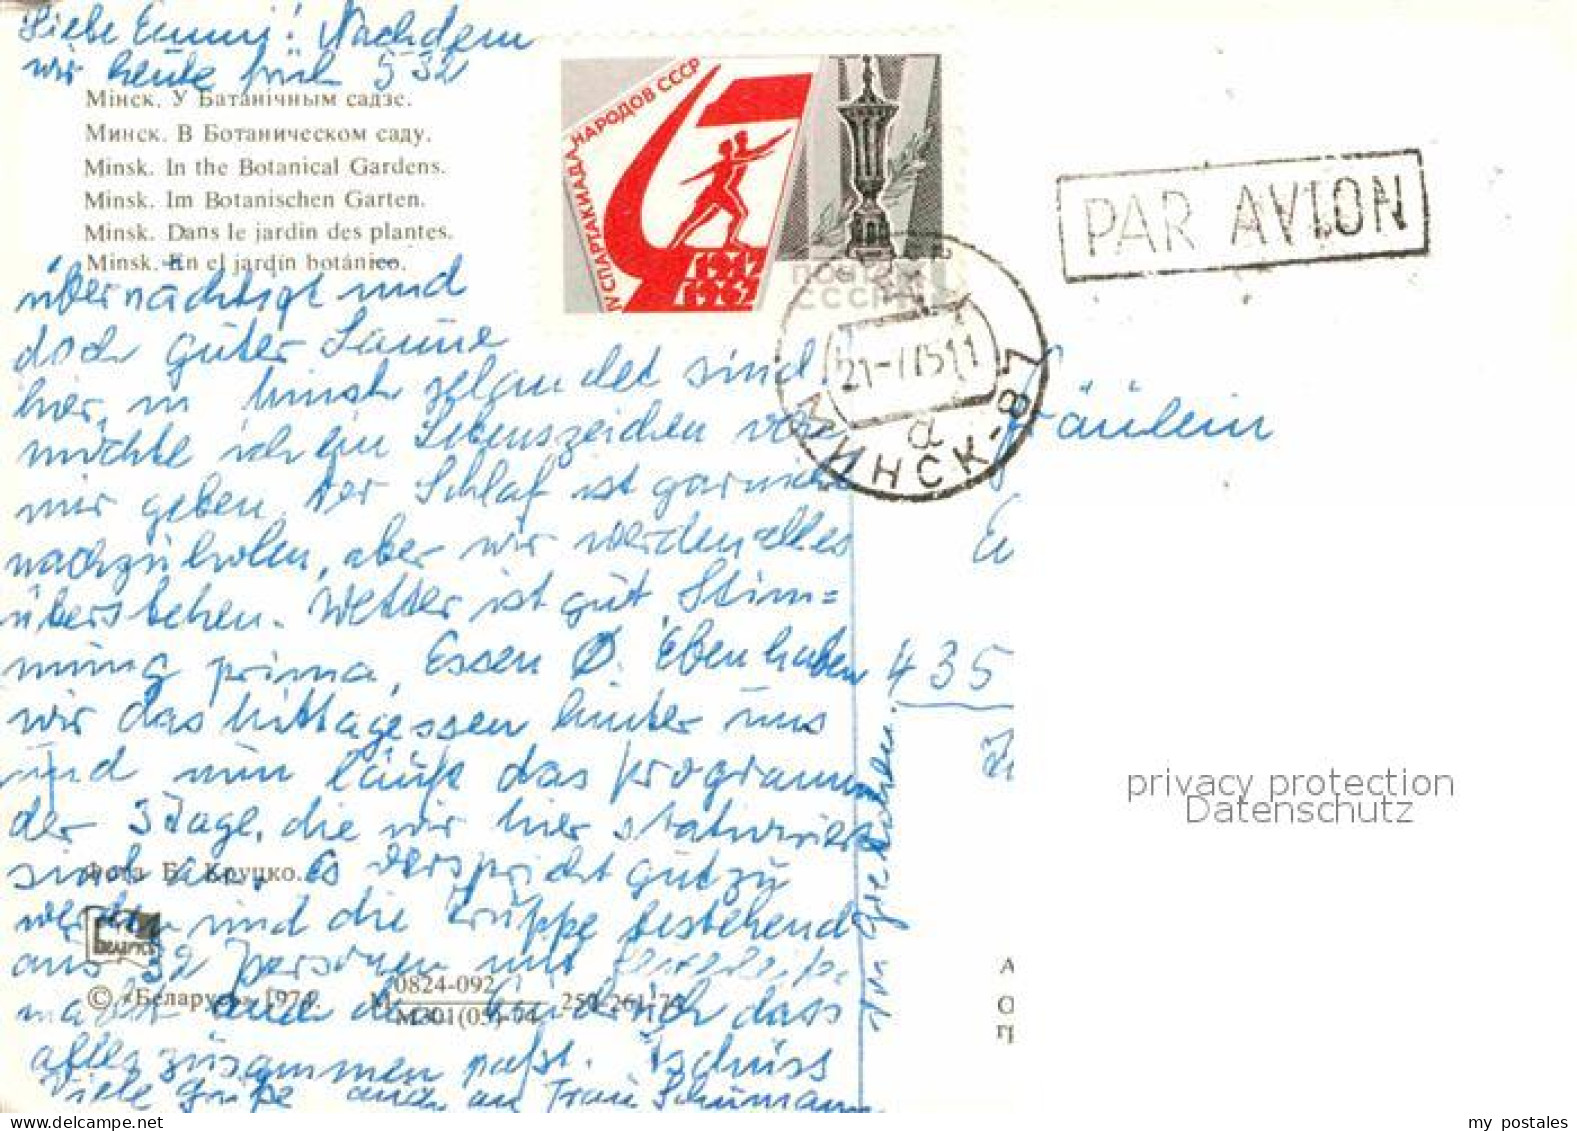 Liebe Emmi! Nachdem
wir heute früh 5³²
Мінск. У Батанічным садзе.
Минск. В Ботаническом саду.
Minsk. In the Botanical Gardens.
Minsk. Im Botanischen Garten.
Minsk. Dans le jardin des plantes.
Minsk. En el jardín botánico.
übernächtigt und
doch guter Laune
hier in Minsk gelandet sind,
möchte ich ein Lebenszeichen von
mir geben. Der Schlaf ist garnicht
nachzuholen, aber wir werden alles
überstehen. Wetter ist gut, Stim=
mung prima, Essen Ø. Eben haben
wir das Mittagessen hinter uns
und nun läuft das Programm
der 3 Tage, die wir hier stationiert
sind an. Es verspricht gut zu
werden und die Truppe bestehend
aus 32 Personen und
macht auch den Eindruck dass
alles zusammen paßt. Tschüss
Viele Grüße auch an Frau Schumann
Фота Б. Круцко.
БЕЛАРУСЬ
© «Беларусь» 1974.
0824-092
М
М301(05)-74
250-261-74
IV СПАРТАКИАДА НАРОДОВ СССР
1917
1967
ПОЧТА
СССР
МИНСК-87
а
PAR AVION
Fräulein
435
privacy protection
Datenschutz
my postales